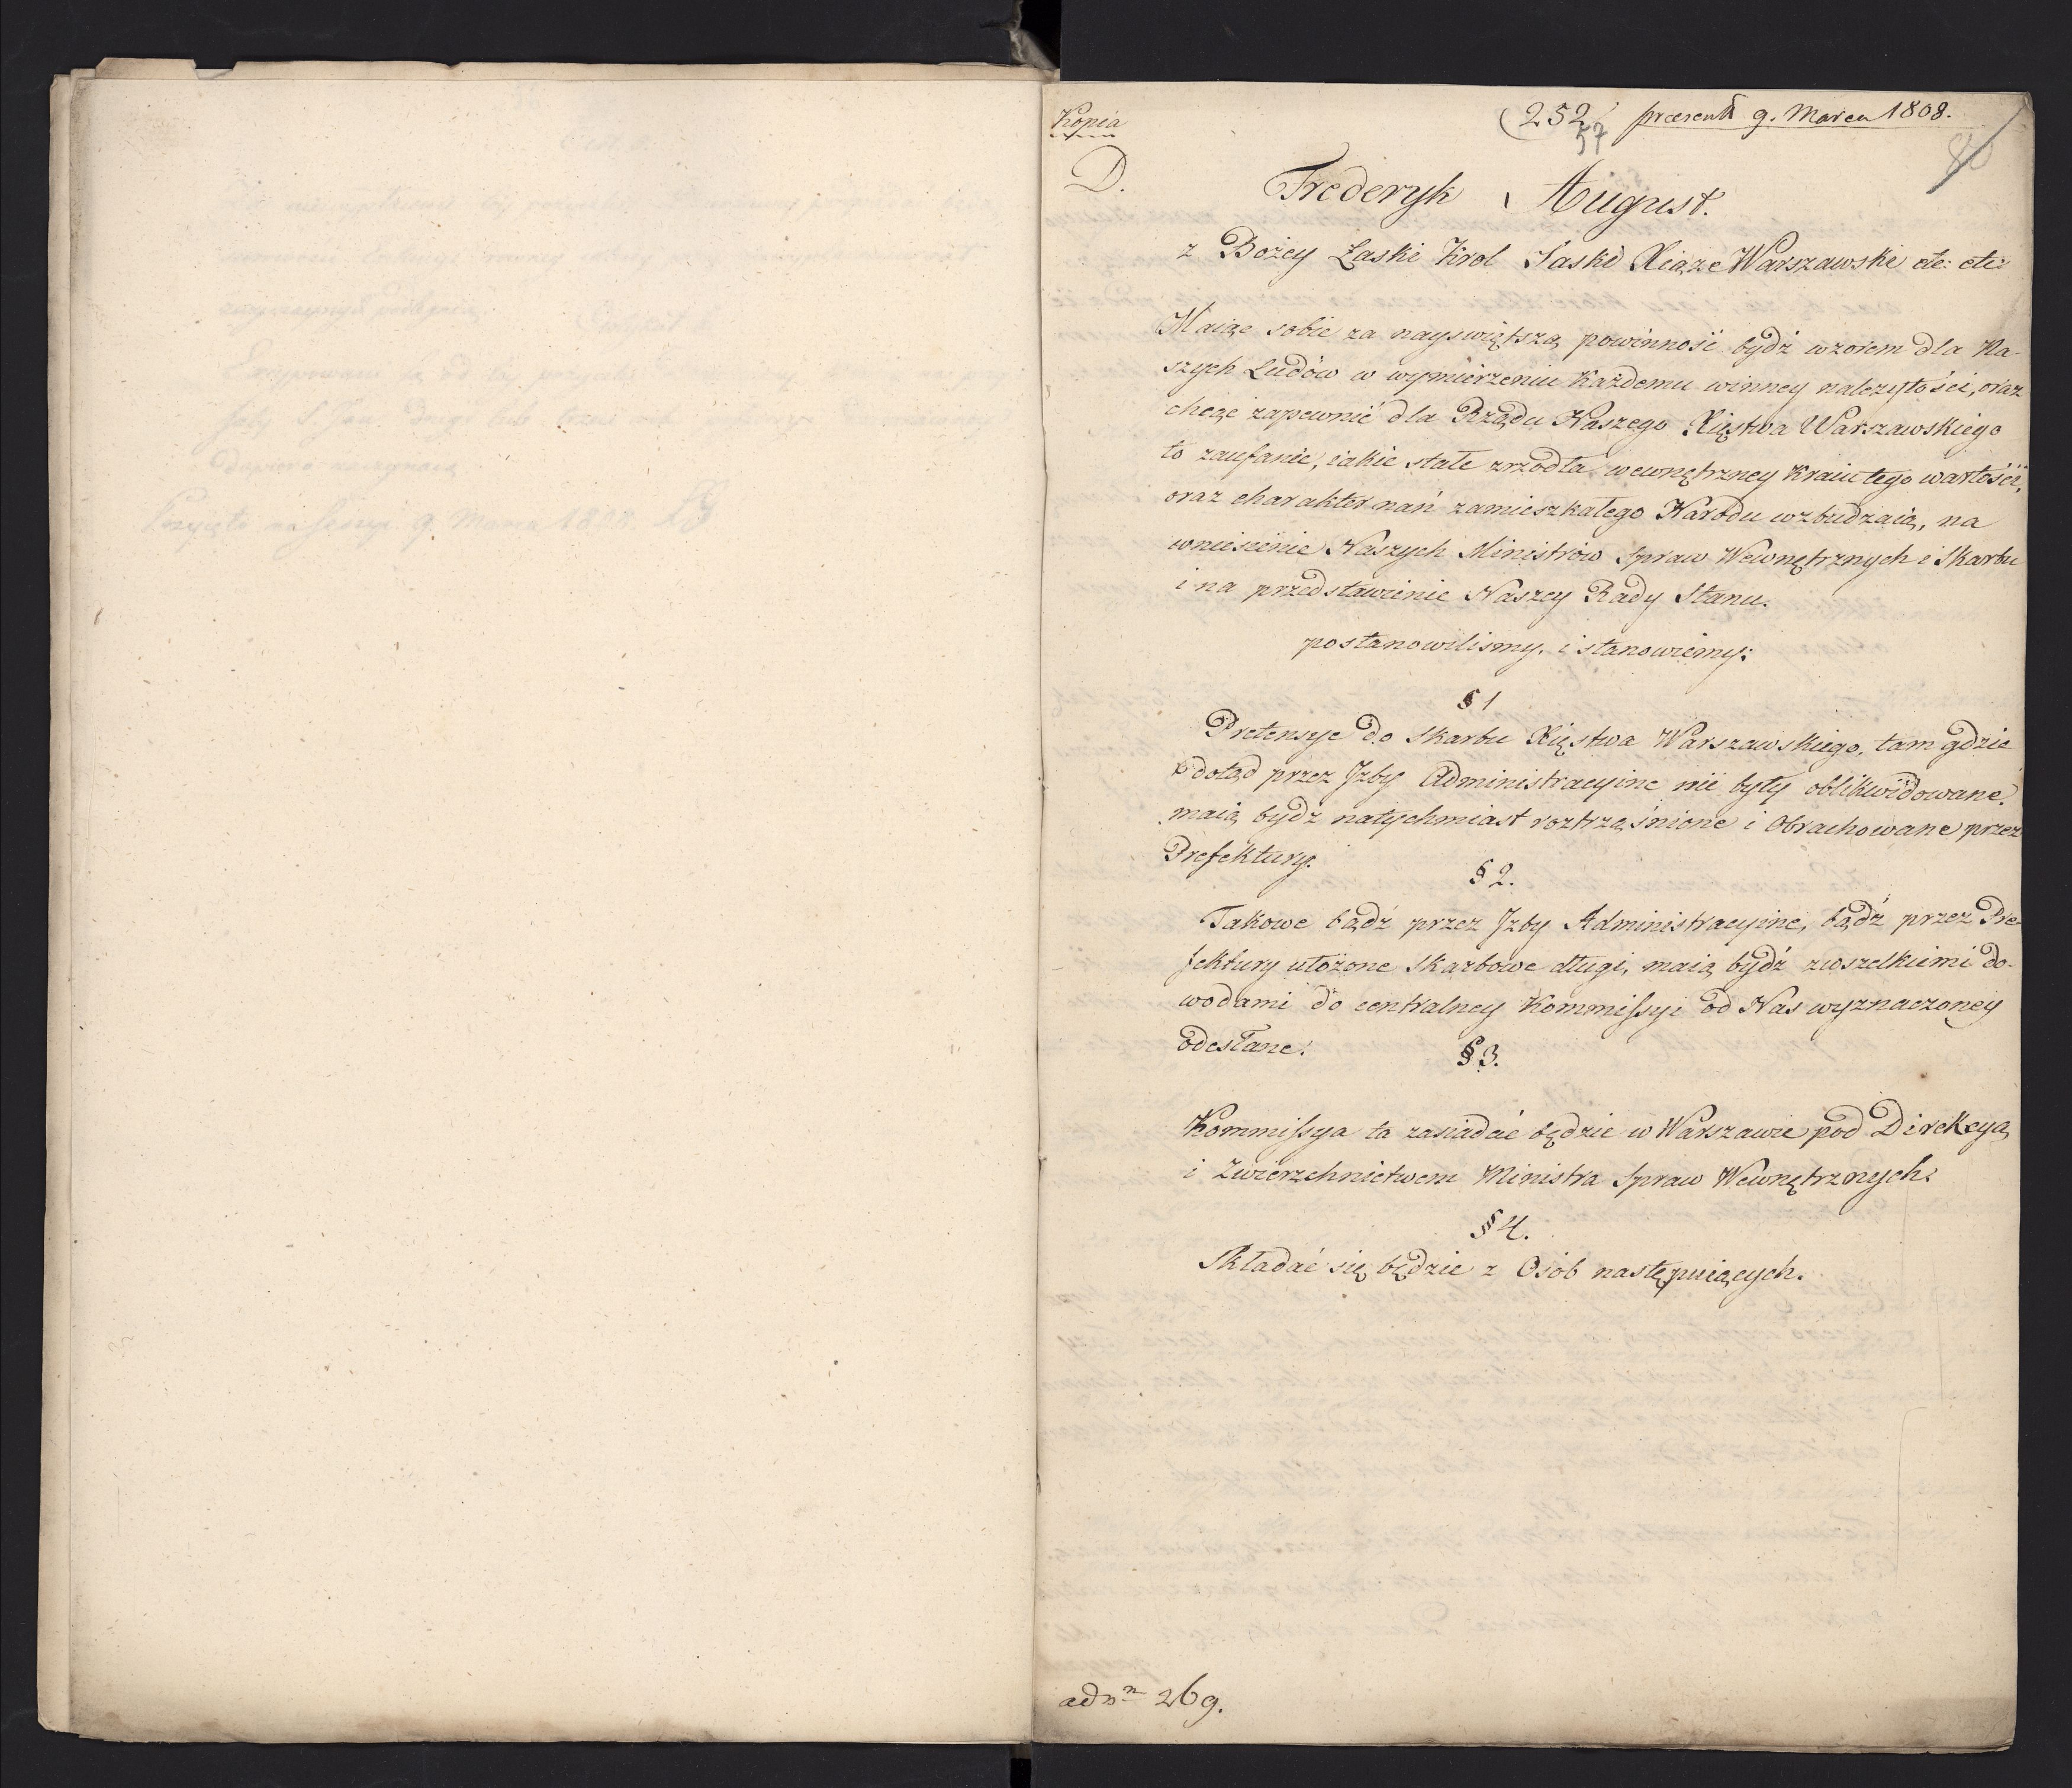 Kopia
(252 præsent 9. Marca 1808.
57
80
D.
Frederyk August.
z Bożey Łaski Krol Saski Xiąże Warszawski etc: etc:
Maiąc sobie za nayswiętszą powinność bydź wzorem dla Na-
szych Ludów w wymierzeniu Każdemu winney należytości, oraz
chcąc zapewnić dla Rządu Naszego Xięstwa Warszawskiego
to zaufanie, iakie stałe zrzodła wewnętrzney Kraiu tego wartości,
oraz charakter nań zamieszkałego Narodu wzbudzaią, na
wniesienie Naszych Ministrów Spraw Wewnętrznych i Skarbu
i na przedstawienie Naszey Rady Stanu.
postanowilismy, i stanowiemy:
§ 1
Pretensye do Skarbu Xięstwa Warszawskiego, tam gdzie
dotąd przez Jzby Administracyine nie były oblikwidowane,
maią bydź natychmiast roztrząśnione i Obrachowane przez
Prefektury.
§ 2.
Takowe bądź przez Jzby Administracyine, bądź przez Pre-
fektury ułożone Skarbowe długi, maią bydź zwszelkiemi do-
wodami do centralney Kommissyi od Nas wyznaczoney
odesłane.
§ 3.
Kommissya ta zasiadać będzie w Warszawie pod Direkcyą
i Zwierzchnictwem Ministra Spraw Wewnętrznych.
§ 4.
Składać się będzie z Osób następuiących.
adn<sup>m</sup> 269.